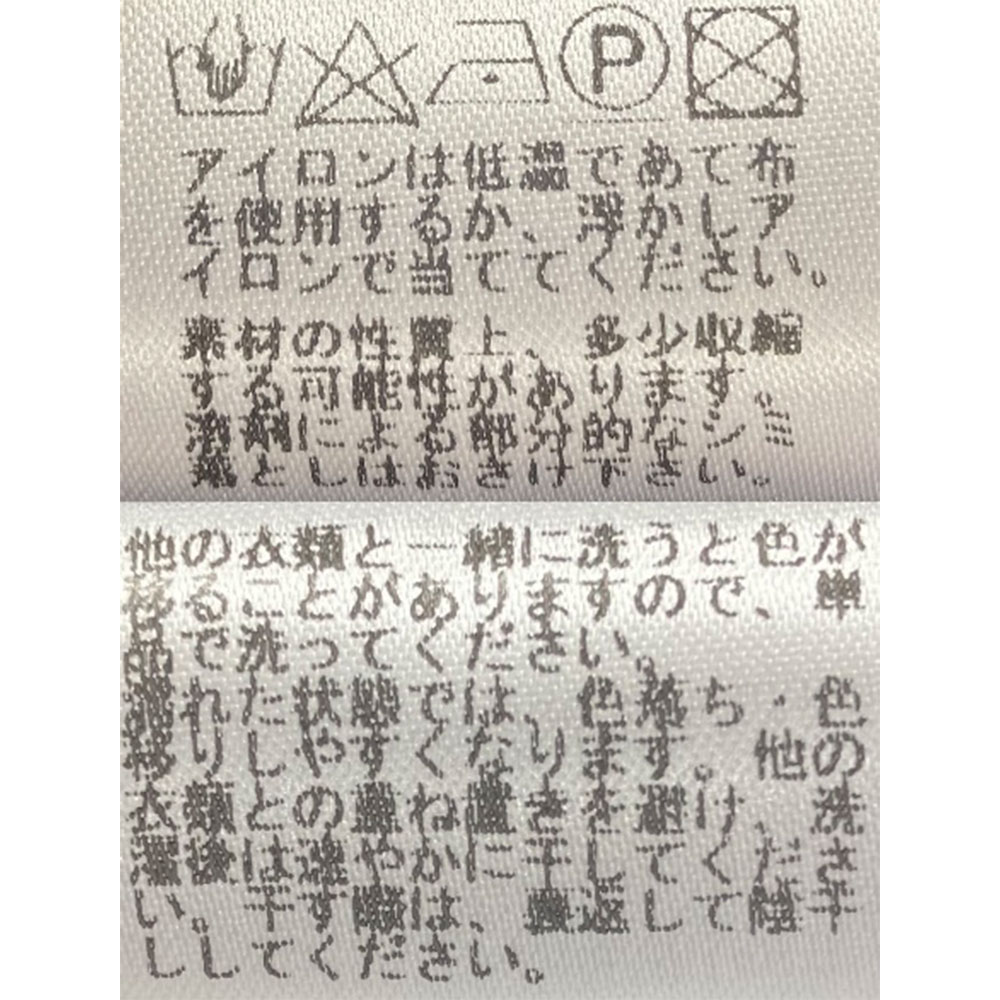 P
アイロンは低温であて布
を使用するか、浮かしア
イロンで当ててください。
素材の性質上、多少収縮
する可能性があります。
溶剤による部分的なシミ
落としはお避け下さい。
他の衣類と一緒に洗うと、色が
移ることがありますので、単
品で洗ってください。
濡れた状態では、色落ち・色
移りしやすくなります。他の
衣類との重ね置きを避け、洗
濯後は速やかに干してくださ
い。干す際は、裏返して陰干
ししてください。